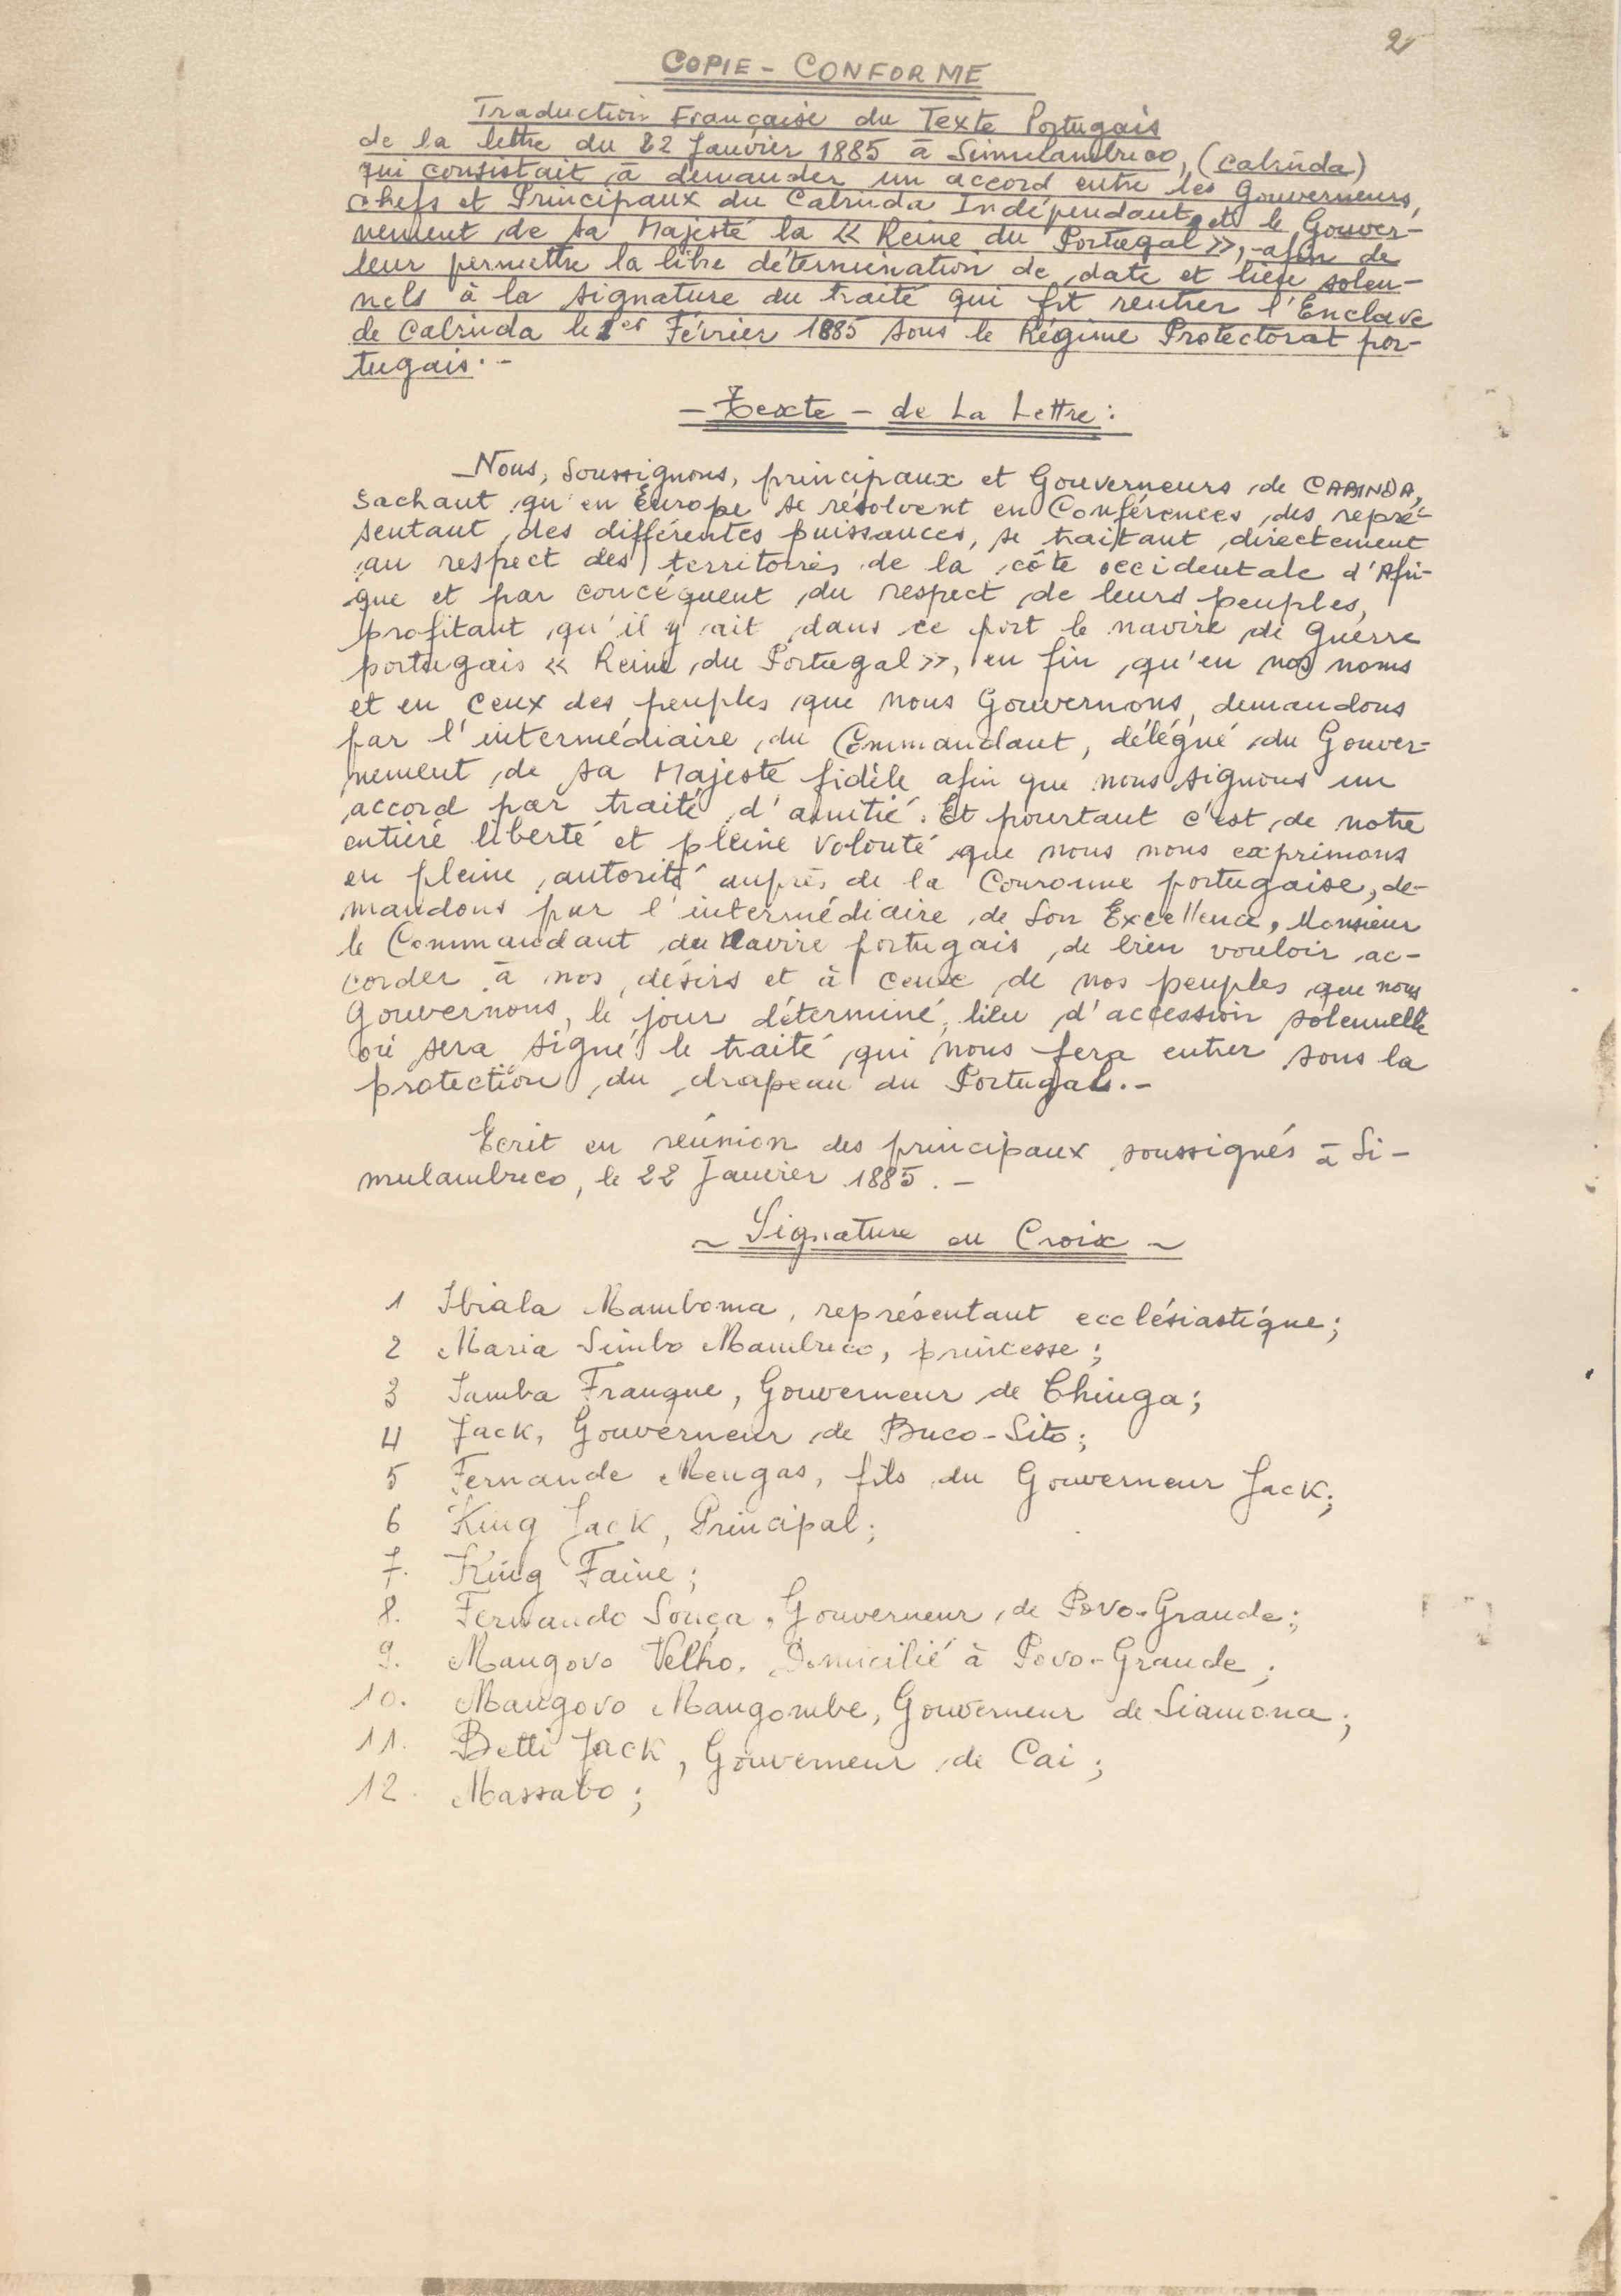 2
COPIE - CONFORME
Traduction Française du Texte Portugais
de la lettre du 22 Janvier 1885 à Simulambuco, (Cabinda)
qui consistait à demander un accord entre les Gouverneurs,
chefs et Principaux du Cabinda Indépendant et le Gouver-
nement de sa Majesté la « Reine du Portugal », afin de
leur permettre la libre détermination de date et lieu solen-
nels à la signature du traité qui fit rentrer l'Enclave
de Cabinda le 1er Février 1885 sous le Régime Protectorat por-
tugais. -
- Texte - de La Lettre :
Nous, Soussignons, principaux et Gouverneurs de CABINDA,
Sachant qu'en Europe se résolvent en Conférences des repré-
sentant des différentes puissances, se traitant directement
au respect des territoires de la côte occidentale d'Afri-
que et par concéquent du respect de leurs peuples,
profitant qu'il y ait dans ce port le navire de guerre
portugais « Reine du Portugal », en fin qu'en nos noms
et en ceux des peuples que nous Gouvernons, demandons
par l'intermédiaire du Commandant, délégué du Gouver-
nement de sa Majesté fidèle afin que nous signons un
accord par traité d'amitié. Et pourtant c'est de notre
entière liberté et pleine volonté que nous nous exprimons
en pleine autorité auprès de la Couronne portugaise, de-
mandons par l'intermédiaire de Son Excellence, Monsieur
le Commandant du Navire portugais de bien vouloir ac-
corder à nos désirs et à ceux de nos peuples que nous
Gouvernons, le jour déterminé, lieu d'accession solennelle
où sera signé le traité qui nous fera entrer sous la
protection du drapeau du Portugal. -
Ecrit en réunion des principaux soussignés à Si-
mulambuco, le 22 Janvier 1885. -
~ Signature ou Croix ~
1 Ibiala Mamboma, représentant ecclésiastique;
2 Maria Simbo Mambuco, princesse;
3 Samba Franque, Gouverneur de Chinga;
4 Jack, Gouverneur de Buco-Sito;
5 Fernande Mengas, fils du Gouverneur Jack;
6 King Jack, Principal;
7. King Faine;
8. Fernando Souça, Gouverneur de Povo-Grande;
9. Mangovo Velho. Domicilié à Povo-Grande;
10. Mangovo Mangombe, Gouverneur de Siamona;
11. Betti Jack, Gouverneur de Cai;
12. Massabo;